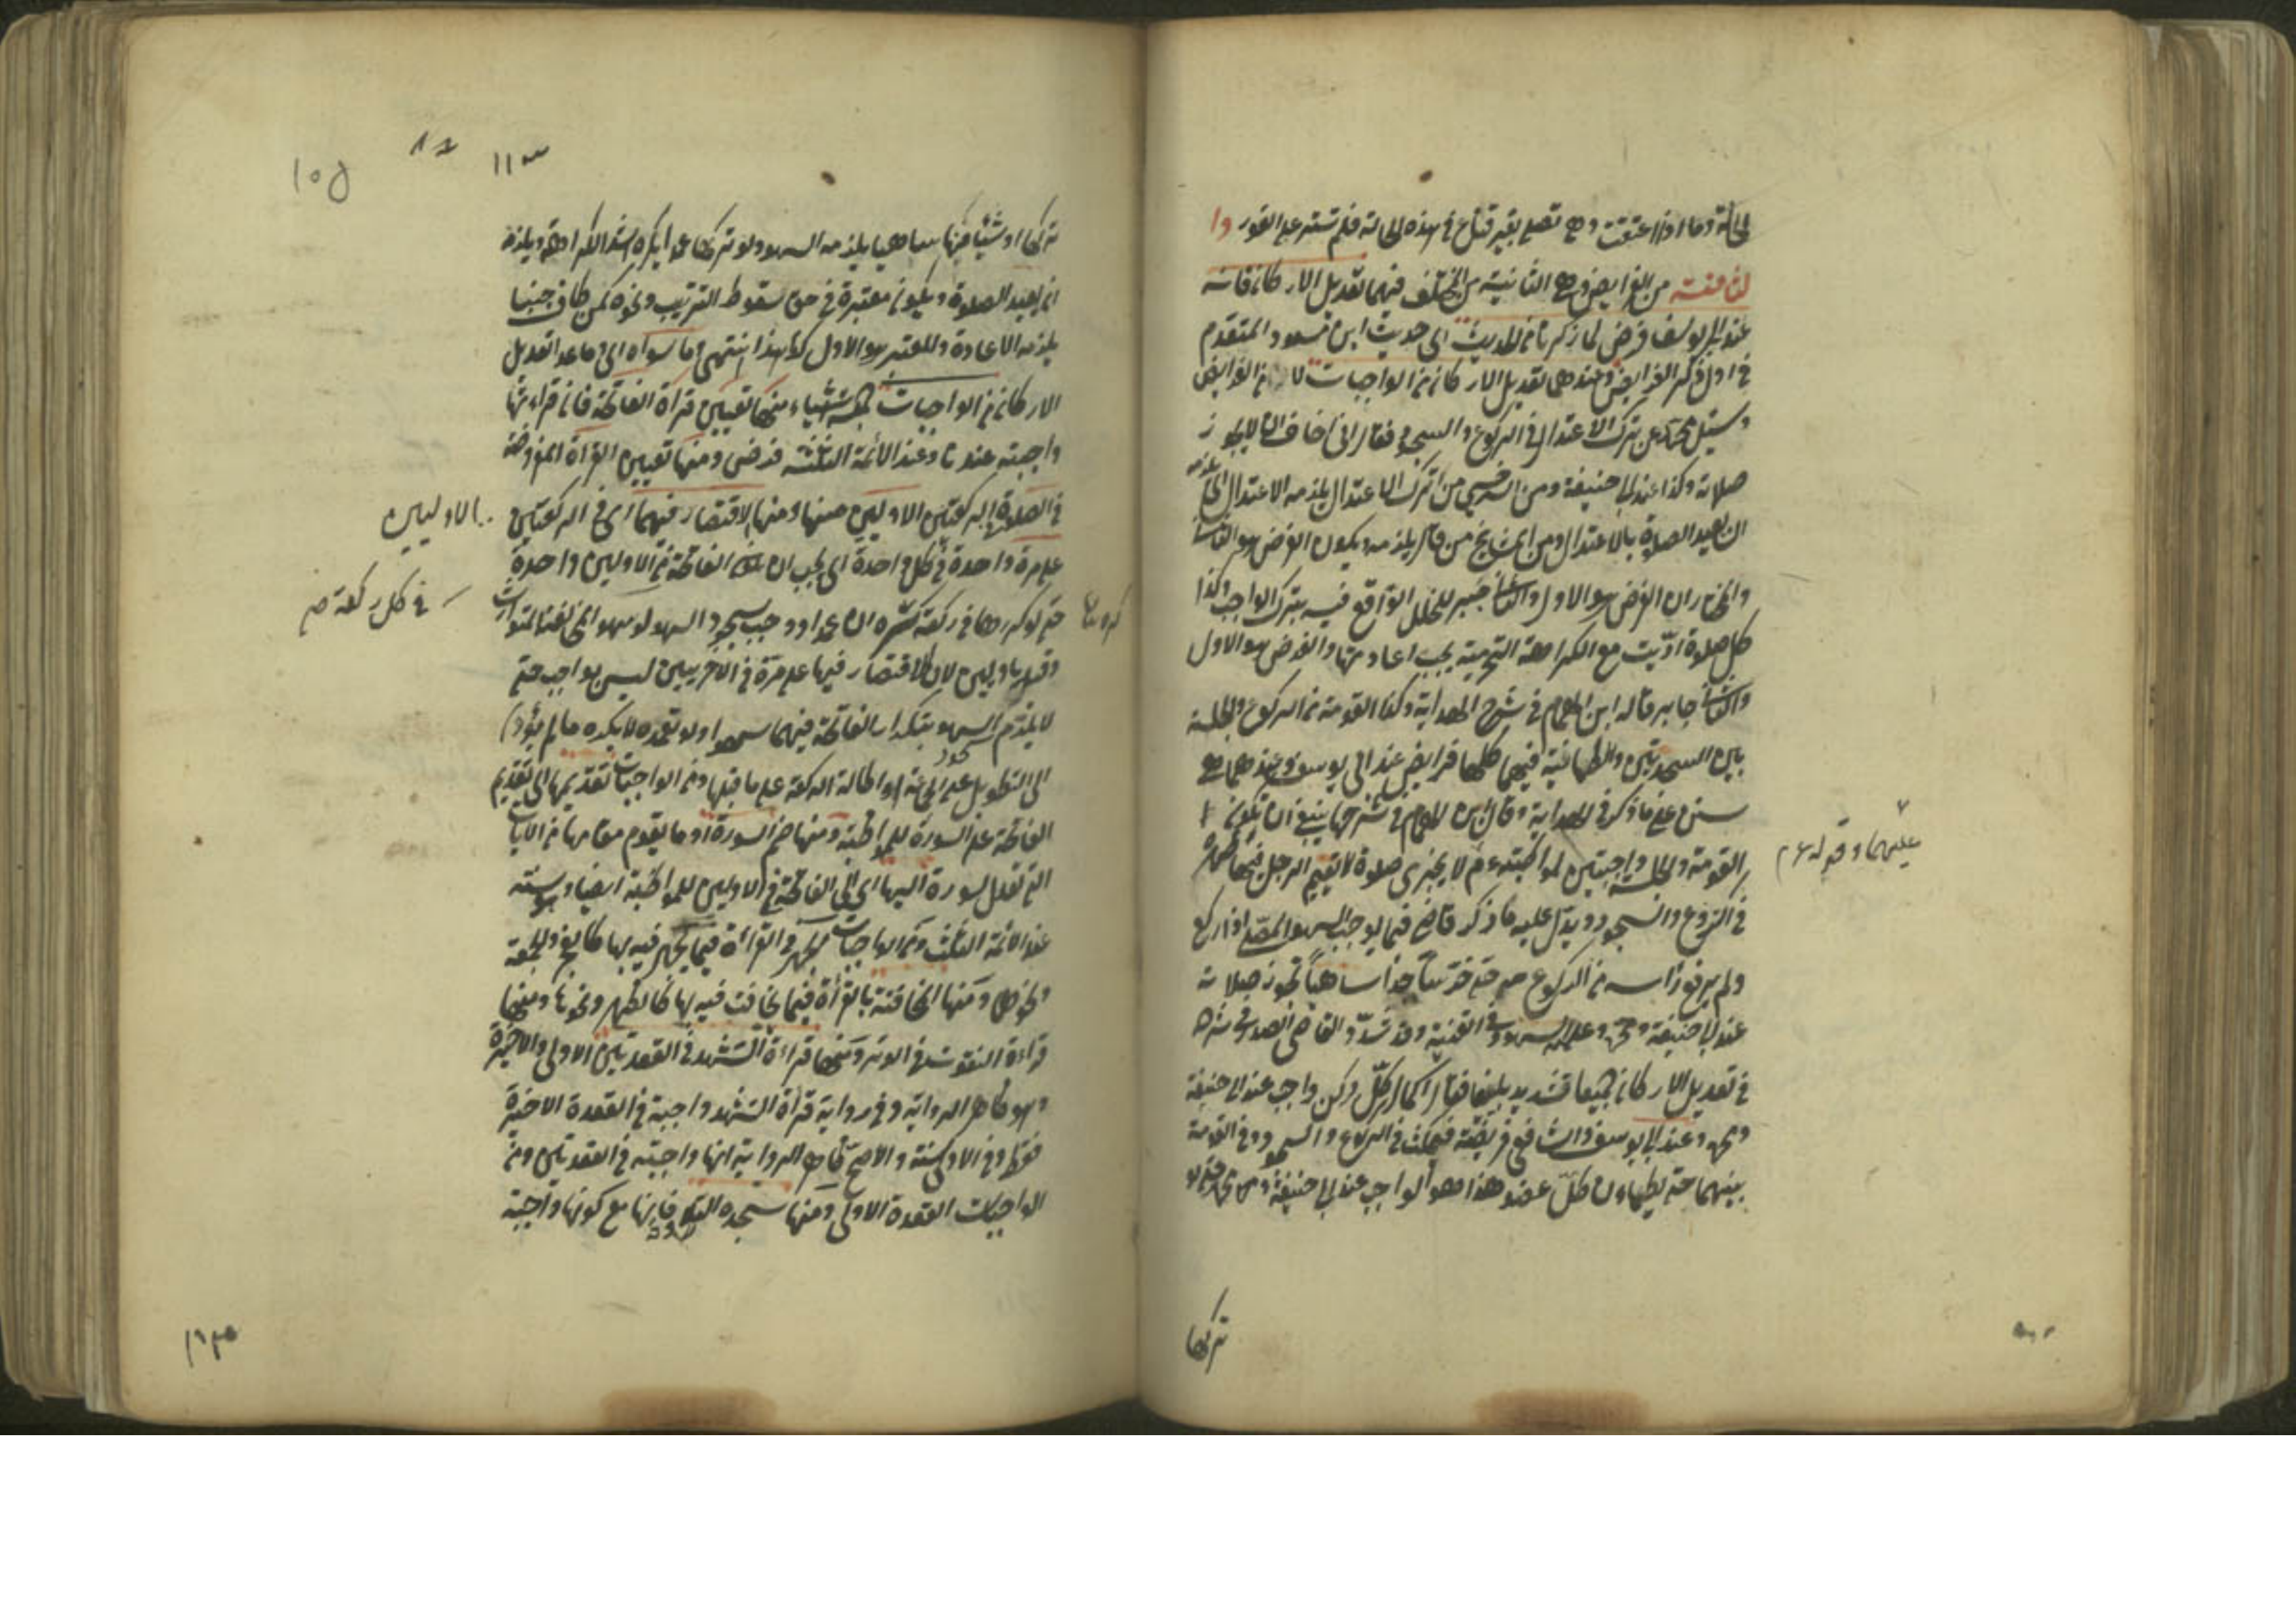 الحالة وما اذا اعتقت وهي تصلي بغير قناع في هذه الحالة فلم تستتر على الفور وا
لثامنة من الفرايض وهي الثانية من المختلف فيهما تعديل الاركان فانه
عند ابي يوسف فرض لما ذكرنا من الحديث اي حديث ابن مسعود المتقدم
في اول ذكر الفرايض وعندهما تعديل الاركان من الواجبات لا من الفرايض
وسئل محمد عن ترك الاعتدال في الركوع والسجود فقال اني اخاف ان لا يجوز
صلاته وكذا عند ابي حنيفة ومن السرخسي من ترك الاعتدال يلزمه الاعتدال اي يلزمه
ان يعيد الصلوة بالاعتدال ومن المشايخ من قال يلزمه ويكون الفرض هو الثاني
والمختار ان الفرض هو الاول والثاني جبر للخلل الواقع فيه بترك الواجب وكذا
كل صلوة ادّيت مع الكراهة التحريمية يجب اعادتها والفرض هو الاول
والثاني جابر قاله ابن الهمام في شرح الهداية وكذا القومة من الركوع والجلسة
بين السجدتين والطمانينة فيهما كلها فرايض عند ابي يوسف وعندهما هي
سنن على ما ذكر في الهداية وقال ابن الهمام في شرحها ينبغي ان تكون ا
القومة والجلسة واجبتين لمواظبته عم لا يجزى صلوة لا يقيم الرجل فيها ظهره
عليهما وقوله عم
في الركوع والسجود ويدل عليه ما ذكر قاضي فيما يوجب السهو المصلي اذا ركع
ولم يرفع راسه من الركوع حتى خر ساجدا ساهيا تجوز صلاته
عند ابي حنيفة ومحمد وعليه السهو وفي القنية وقد شدّد القاضي الصدر في شرحه
في تعديل الاركان جميعا تشديدا بليغا فقال اكمال كلّ ركن واجب عند ابي حنيفة
ومحمد وعند ابي يوسف والشافعي فريضة فيمكث في الركوع والسجود وفي القومة
بينهما حتى يطمان كلّ عضو هذا هو الواجب عند ابي حنيفة ومحمد حتى لو
تركها
١١٣
تركها او شيئا منها ساهيا يلزمه السهو ولو تركها عمدا يكره اشد الكراهة ويلزمه
ان يعيد الصلوة ويكون معتبرة في حق سقوط الترتيب ونحوه كمن طاف جنبا
يلزمه الاعادة والمعتبر هو الاول كذا هذا انتهى وما سواه اي وما عدا تعديل
الاركان من الواجبات اشياء منها تعيين قراة الفاتحة فان قراءتها
واجبة عندنا وعند الائمة الثلثة فرض ومنها تعيين القراة المفروضة
في الصلوة الركعتين الاوليين منها ومنها الاقتصار فيهما اي في الركعتين
الاوليين
على مرة واحدة في كل واحدة اي يجب ان الفاتحة في الاوليين واحدة
في كل ركعة من
حتى لو كررها في ركعة كره ان عمدا ووجب سجود السهو لو سهوا لمخالفة المتوارث
وقيد بالاوليين لان الاقتصار فيها على مرة في الاخريين ليس بواجب حتى
لا يلزم سجود السهو بتكرار الفاتحة فيهما سهوا ولو تعمده لا يكره ما لم يؤد
الى التطويل على الجماعة او اطالة الركعة على ما قبلها ومن الواجبات تقديمها اي تقديم
الفاتحة على السورة للمواظبة ومنها ضم السورة او ما يقوم مقامها من الايات
التي تعدل سورة اليها اي الى الفاتحة في الاوليين للمواظبة ايضا وهو سنة
عند الائمة الثلث ومن الواجبات الجهر في القراءة فيما يجهر فيه بها كالفجر والجمعة
ونحوها ومنها المخافتة بالقراة فيما يخافت فيه بها كالظهر ونحوها ومنها
قراءة القنوت في الوتر ومنها قراءة التشهد في القعدتين الاولى والاخيرة
وهو ظاهر الرواية وفي رواية قراة التشهد واجبة في القعدة الاخيرة
فقط وفي الاولى سنة والاصح ظاهر الرواية انها واجبة في القعدتين ومن
الواجبات القعدة الاولى ومنها سجدة التلاوة فانها مع كونها واجبة